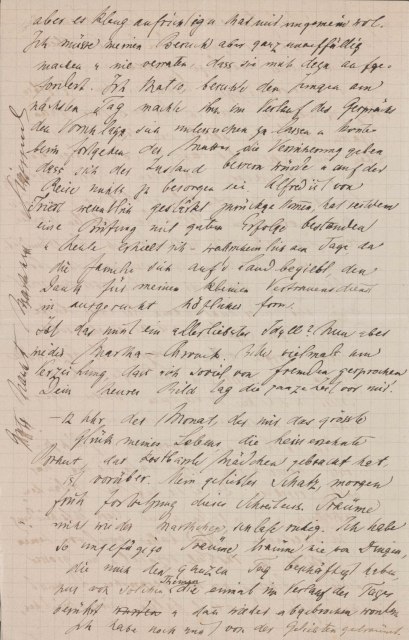 aber es klang aufrichtig u hat mir ungemein wol.
Ich müsse meinen Besuch aber ganz unauffällig
machen u nie verraten, dass sie mich dazu aufge-
fordert. Ich that's, besuchte den Jungen am
nächsten Tag machte ihm im Verlauf des Gesprächs
den Vorschlag, sich untersuchen zu lassen u konnte
beim Fortgehen der Mutter die Versicherung geben
dass sich der Zustand bessern würde u auf der
Reise nichts zu besorgen sei. Alfred ist von
wesentlich gestärkt zurückgekommen, hat seitdem
eine Prüfung mit gutem Erfolge bestanden
u heute erhielt ich am Tage da
die Familie sich auf's Land begiebt den
Dank für meinen kleinen Vertrauensdienst
in ausgesucht höflicher Form.
Ist das nicht ein allerliebstes Idyll? Nun aber
wieder Martha - Chronik. Bitte vielmals um
Verzeihung, dass ich soviel von Fremden gesprochen
Dein teures Bild lag die ganze Zeit vor mir!
— 12 Uhr, der Monat, der mir das grösste
Glück meines Lebens die heissersehnte
Braut, das kostbarste Mädchen gebracht hat,
ist vorüber. Mein geliebter Schatz, morgen
früh Fortsetzung dieses Schreibens. Träume
nicht wieder Marthchen, schlafe ruhig. Ich habe
so ungefügige Träume, träume nie von Dingen,
die mich den ganzen Tag beschäftigt haben,
nur von solchen Themen die einmal im Verlauf des Tages
berührt u dann wieder abgebrochen wurden.
Ich habe noch nie von der Geliebten geträumt